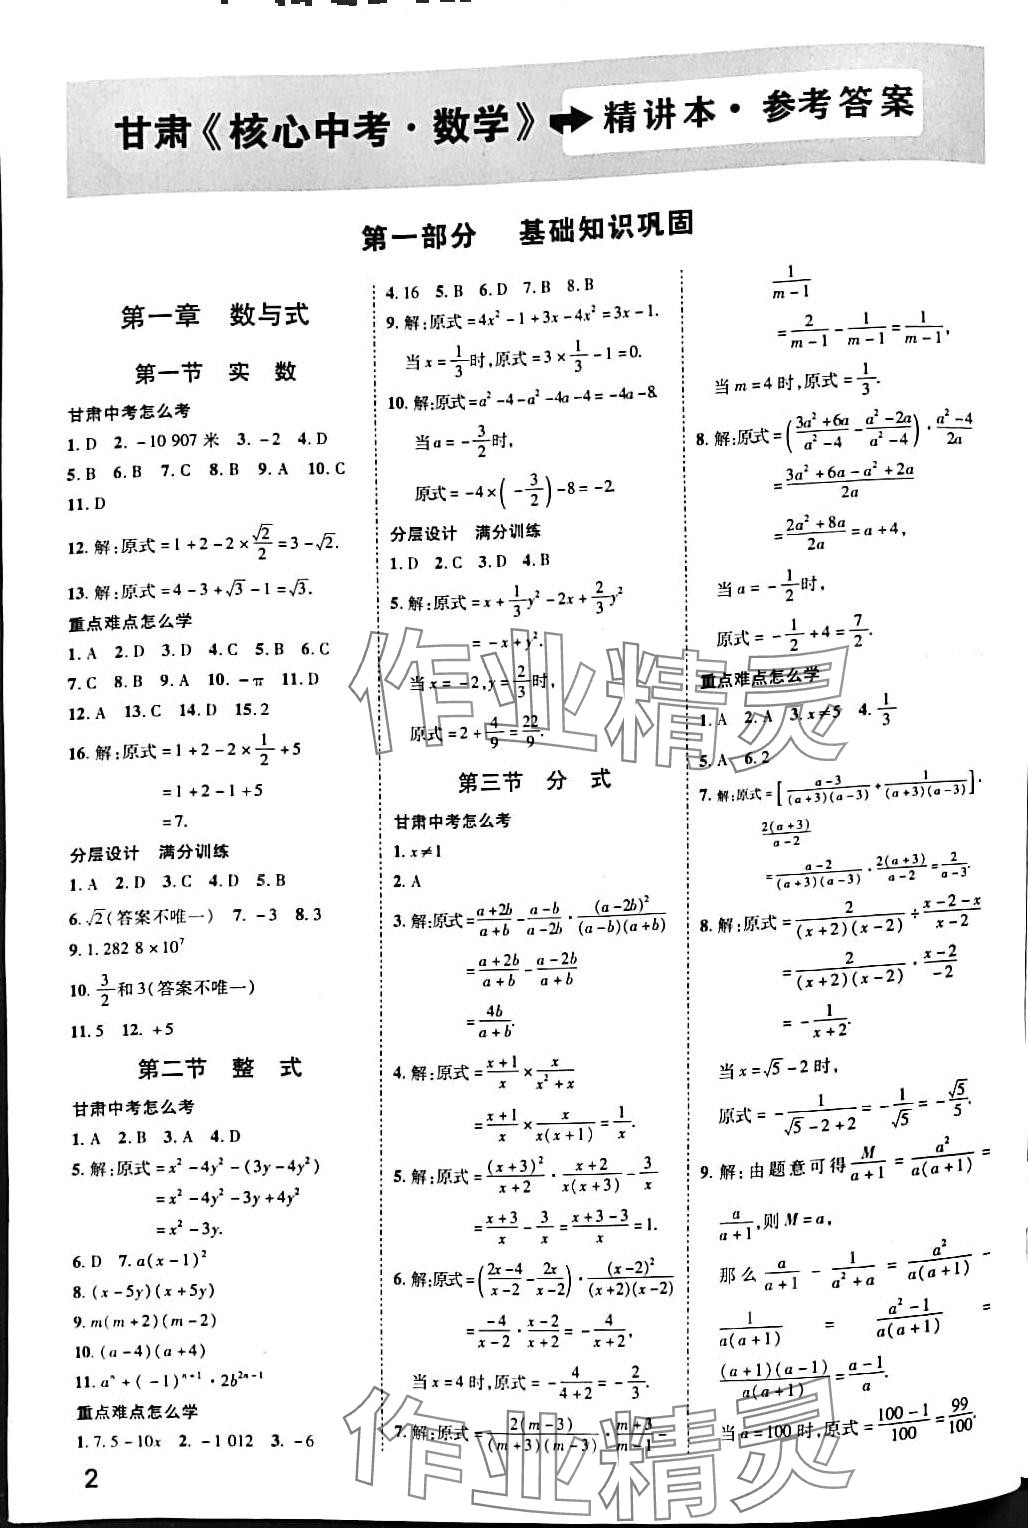 甘肃《核心中考·数学》→精讲本·参考答案
第一部分 基础知识巩固
第一章 数与式
第一节 实 数
甘肃中考怎么考
1. D 2. -10 907 米 3. -2 4. D
5. B 6. B 7. C 8. B 9. A 10. C
11. D
12. 解:原式=1+2-2×√2/2=3-√2.
13. 解:原式=4-3+√3-1=√3.
重点难点怎么学
1. A 2. D 3. D 4. C 5. B 6. C
7. C 8. B 9. A 10. -π 11. D
12. A 13. C 14. D 15. 2
16. 解:原式=1+2-2×1/2+5
=1+2-1+5
=7.
分层设计 满分训练
1. A 2. D 3. C 4. D 5. B
6. √2(答案不唯一) 7. -3 8. 3
9. 1.282 8×10⁷
10. 3/2和3(答案不唯一)
11. 5 12. +5
第二节 整 式
甘肃中考怎么考
1. A 2. B 3. A 4. D
5. 解:原式=x²-4y²-(3y-4y²)
=x²-4y²-3y+4y²
=x²-3y.
6. D 7. a(x-1)²
8. (x-5y)(x+5y)
9. m(m+2)(m-2)
10. (a-4)(a+4)
11. aⁿ+(-1)ⁿ⁺¹·2b²ⁿ⁻¹
重点难点怎么学
1. 7.5-10x 2. -1 012 3. -6
4. 16 5. B 6. D 7. B 8. B
9. 解:原式=4x²-1+3x-4x²=3x-1.
当x=1/3时,原式=3×1/3-1=0.
10. 解:原式=a²-4-a²-4a-4=-4a-8.
当a=-3/2时,
原式=-4×(-3/2)-8=-2.
分层设计 满分训练
1. D 2. C 3. D 4. B
5. 解:原式=x+1/3y²-2x+2/3y²
=-x+y².
当x=-2,y=2/3时,
原式=2+4/9=22/9.
第三节 分 式
甘肃中考怎么考
1. x≠1
2. A
3. 解:原式=(a+2b)/(a+b)-(a-b)/(a-2b)·(a-2b)²/((a-b)(a+b))
=(a+2b)/(a+b)-(a-2b)/(a+b)
=4b/(a+b).
4. 解:原式=(x+1)/x×x/(x²+x)
=(x+1)/x×x/(x(x+1))=1/x.
5. 解:原式=(x+3)²/(x+2)·(x+2)/(x(x+3))-3/x
=(x+3)/x-3/x=(x+3-3)/x=1.
6. 解:原式=((2x-4)/(x-2)-2x/(x-2))·(x-2)²/((x+2)(x-2))
=-4/(x-2)·(x-2)/(x+2)=-4/(x+2).
当x=4时,原式=-4/(4+2)=-2/3.
7. 解:原式=2(m-3)/((m+3)(m-3))·(m+3)/(m-1)-
1/(m-1)
=2/(m-1)-1/(m-1)=1/(m-1),
当m=4时,原式=1/3.
8. 解:原式=((3a²+6a)/(a²-4)-(a²-2a)/(a²-4))·(a²-4)/2a
=(3a²+6a-a²+2a)/2a
=(2a²+8a)/2a=a+4,
当a=-1/2时,
原式=-1/2+4=7/2.
重点难点怎么学
1. A 2. A 3. x≠5 4. 1/3
5. A 6. 2
7. 解:原式=[(a-3)/((a+3)(a-3))+1/((a+3)(a-3))]·
2(a+3)/(a-2)
=(a-2)/((a+3)(a-3))·2(a+3)/(a-2)=2/(a-3).
8. 解:原式=2/((x+2)(x-2))÷(x-2-x)/(x-2)
=2/((x+2)(x-2))·(x-2)/-2
=-1/(x+2).
当x=√5-2时,
原式=-1/(√5-2+2)=-1/√5=-√5/5.
9. 解:由题意可得M/(a+1)=a²/(a(a+1))=
a/(a+1),则M=a,
那么a/(a+1)-1/(a²+a)=a²/(a(a+1))-
1/(a(a+1))=(a²-1)/(a(a+1))=
(a+1)(a-1)/(a(a+1))=(a-1)/a.
当a=100时,原式=(100-1)/100=99/100.
2
作业精灵
作业精灵